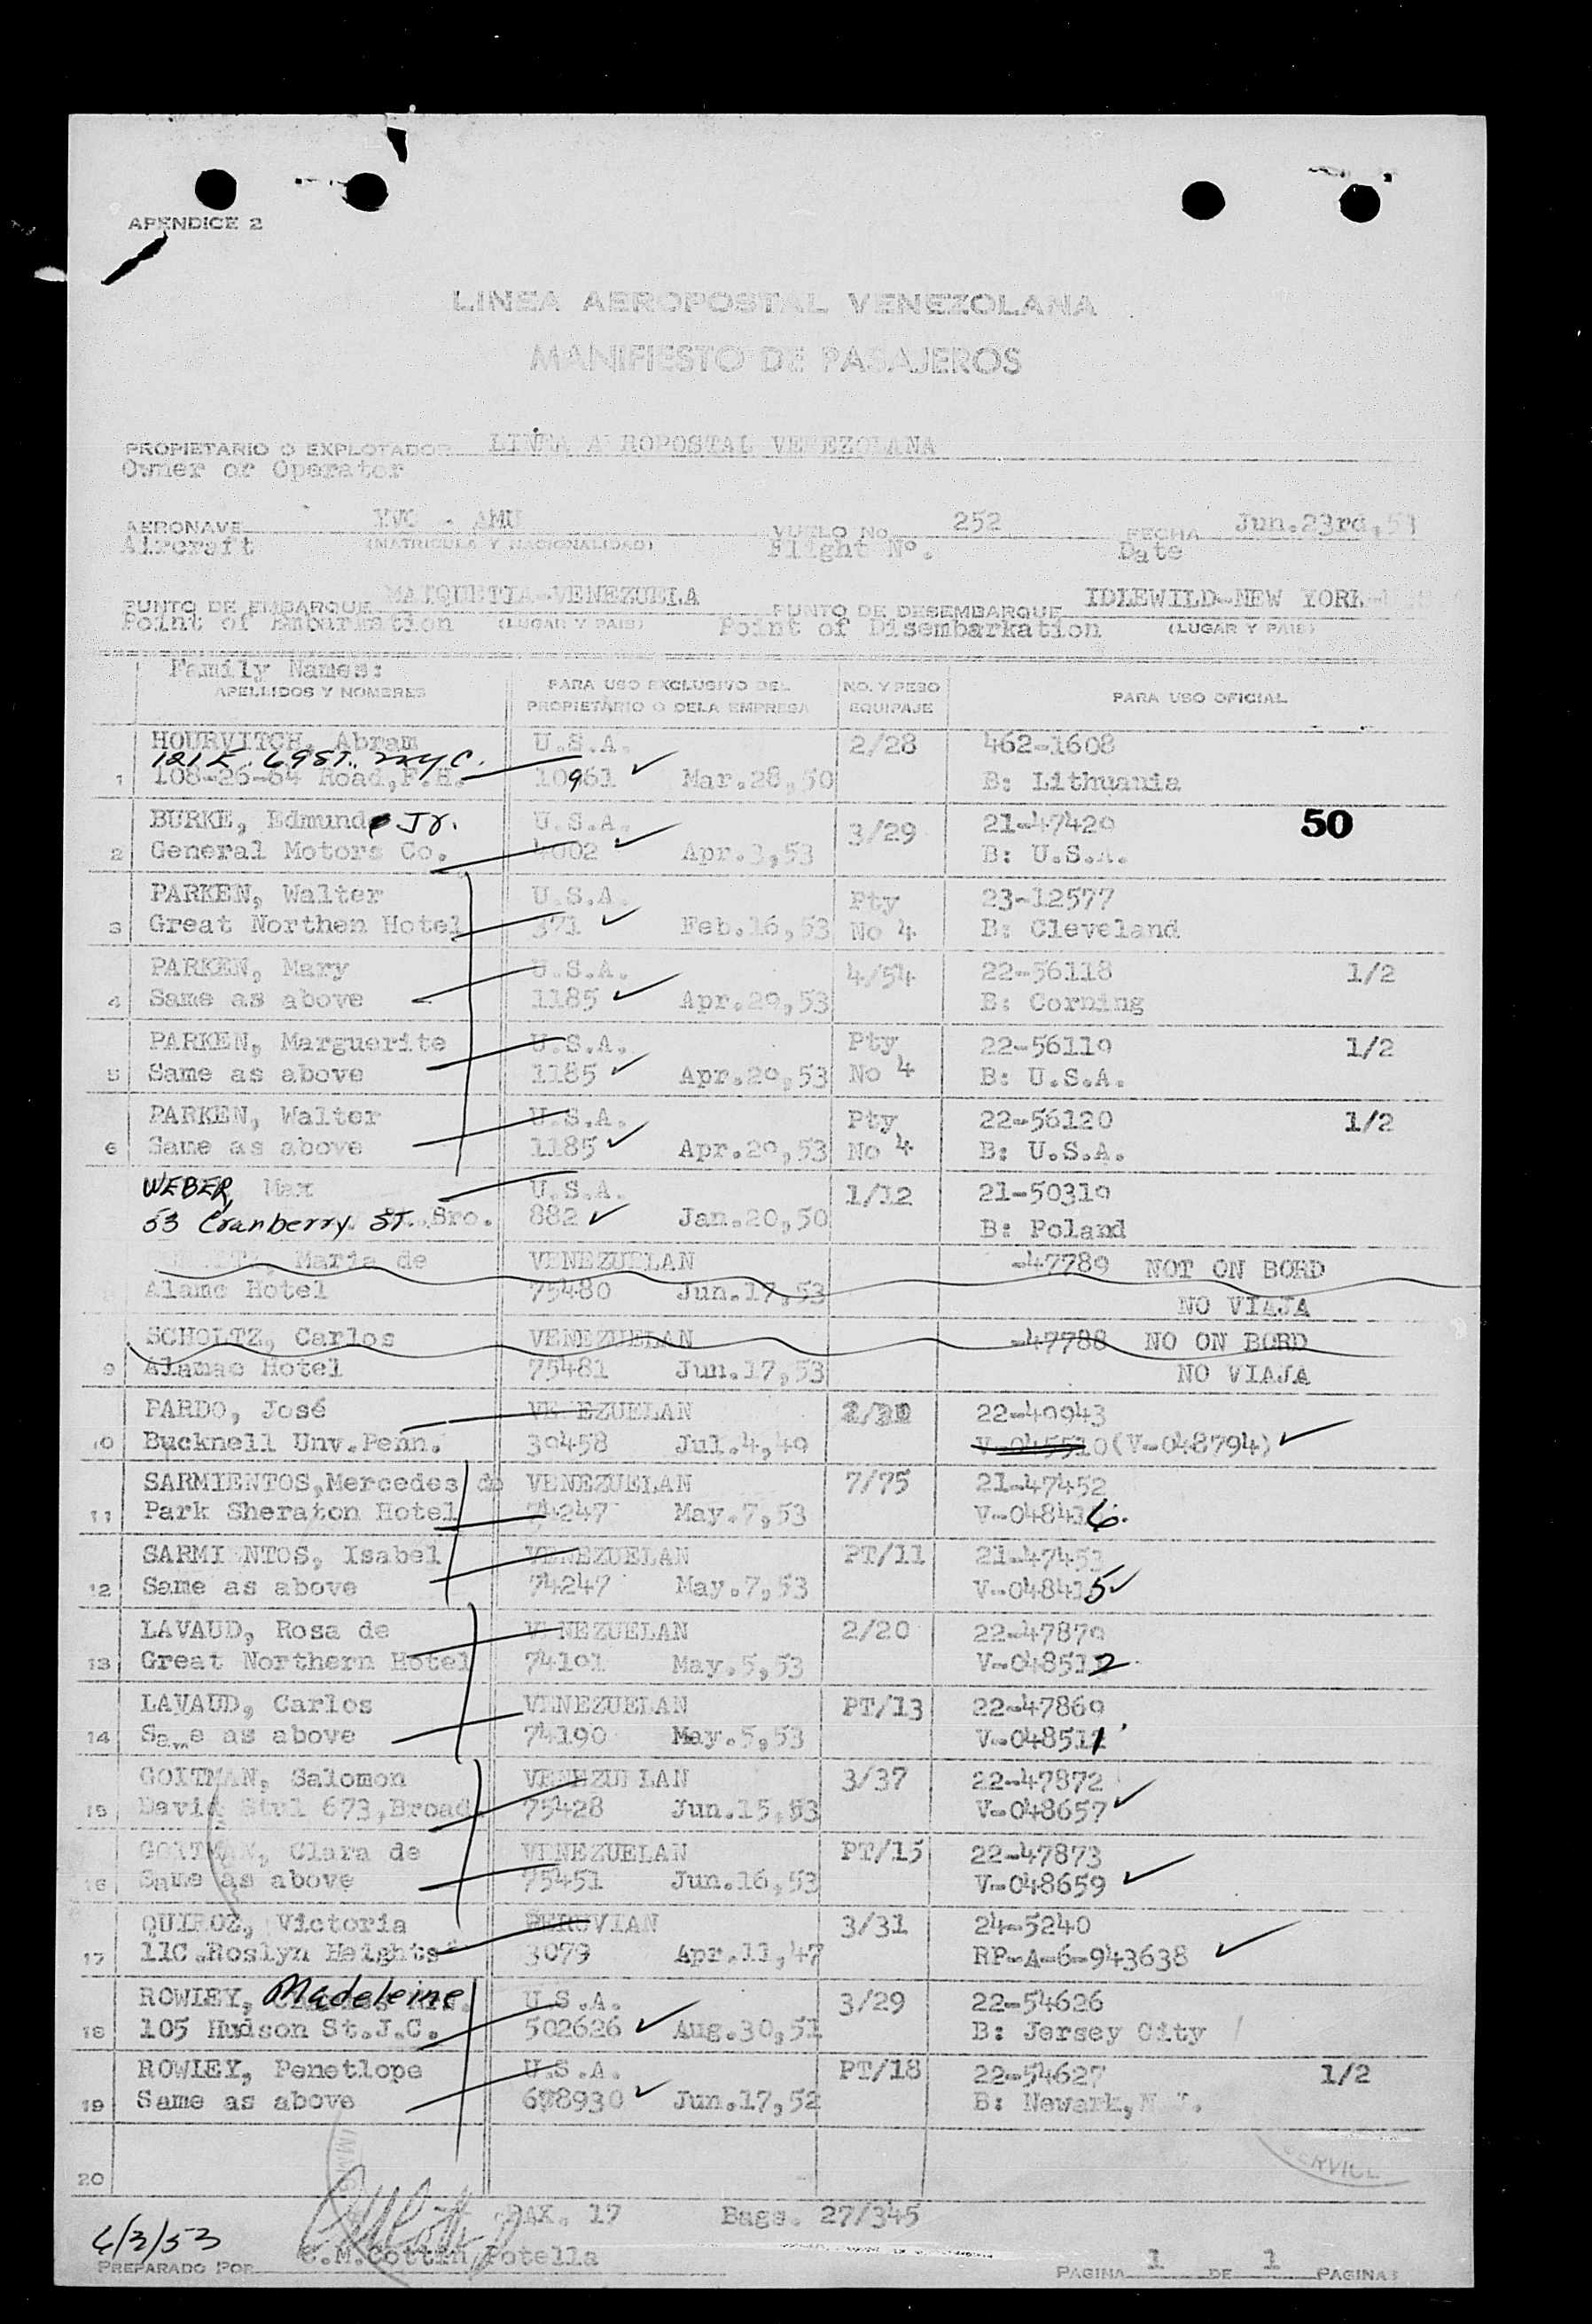 APENDICE 2
LINEA AEROPOSTAL VENEZOLANA
MANIFIESTO DE PASAJEROS
PROPIETARIO O EXPLOTADOR LINEA A ROPOSTAL VENEZOLANA
Owner or Operator
AERONAVE YVC - AMU VUELO No. 252 FECHA Jun.23rd,53
Aircraft (MATRICULA Y NACIONALIDAD) Flight Nº. Date
PUNTO DE EMBARQUE MAIQUETIA-VENEZUELA PUNTO DE DESEMBARQUE IDLEWILD-NEW YORK
Point of Embarkation (LUGAR Y PAIS) Point of Disembarkation (LUGAR Y PAIS)
Family Names:
APELLIDOS Y NOMBRES PARA USO EXCLUSIVO DEL PROPIETARIO O DELA EMPRESA NO. Y PESO EQUIPAJE PARA USO OFICIAL
HOURVITCH, Abram U.S.A. 2/28 462-1608
121 E. 69 ST. NYC.
1 108-26-64 Road,F.H. 10961 Mar.28,50 B: Lithuania
BURKE, Edmund Jr. U.S.A. 3/29 21-47429 50
2 General Motors Co. 4002 Apr.3,53 B: U.S.A.
PARKEN, Walter U.S.A. Pty 23-12577
3 Great Northen Hotel 371 Feb.16,53 No 4 B: Cleveland
PARKEN, Mary U.S.A. 4/54 22-56118 1/2
4 Same as above 1185 Apr.29,53 B: Corning
PARKEN, Marguerite U.S.A. Pty 22-56119 1/2
5 Same as above 1185 Apr.29,53 No 4 B: U.S.A.
PARKEN, Walter U.S.A. Pty 22-56120 1/2
6 Same as above 1185 Apr.29,53 No 4 B: U.S.A.
WEBER, Max U.S.A. 1/12 21-50319
53 Cranberry ST. Bro. 882 Jan.20,50 B: Poland
Maria de VENEZUELAN -47789 NOT ON BORD
Alamc Hotel 75480 Jun.17,53 NO VIAJA
SCHOLTZ, Carlos VENEZUELAN -47788 NO ON BORD
9 Alamac Hotel 75481 Jun.17,53 NO VIAJA
PARDO, José VE EZUELAN 22-40943
10 Bucknell Unv.Penn. 39458 Jul.4,49 V-045510(V-048794)
SARMIENTOS,Mercedes de VENEZUELAN 7/75 21-47452
11 Park Sheraton Hotel 74247 May.7,53 V-048416.
SARMI NTOS, Isabel VENEZUELAN PT/11 21-47453
12 Same as above 74247 May.7,53 V-048415
LAVAUD, Rosa de V NEZUELAN 2/20 22-47879
13 Great Northern Hotel 74191 May.5,53 V-048512
LAVAUD, Carlos VENEZUELAN PT/13 22-47869
14 Same as above 74190 May.5,53 V-048511
GOITMAN, Salomon VENEZUE LAN 3/37 22-47872
15 David Stvl 673,Broad. 75428 Jun.15,53 V-048657
GOITMAN, Clara de VENEZUELAN PT/15 22-47873
16 Same as above 75451 Jun.16,53 V-048659
QUIROZ, Victoria PERUVIAN 3/31 24-5240
17 11C.Roslyn Heights 3079 Apr.11,47 RP-A-6-943638
ROWLEY, Madeleine U.S.A. 3/29 22-54626
18 105 Hudson St.J.C. 502626 Aug.30,51 B: Jersey City
ROWLEY, Penetlope U.S.A. PT/18 22-54627 1/2
19 Same as above 678930 Jun.17,52 B: Newark,N.J.
20
IMMIG SERVICE
PAX. 17 Bags. 27/345
6/3/53
PREPARADO POR C.M.Cottin Potella PAGINA 1 DE 1 PAGINAS